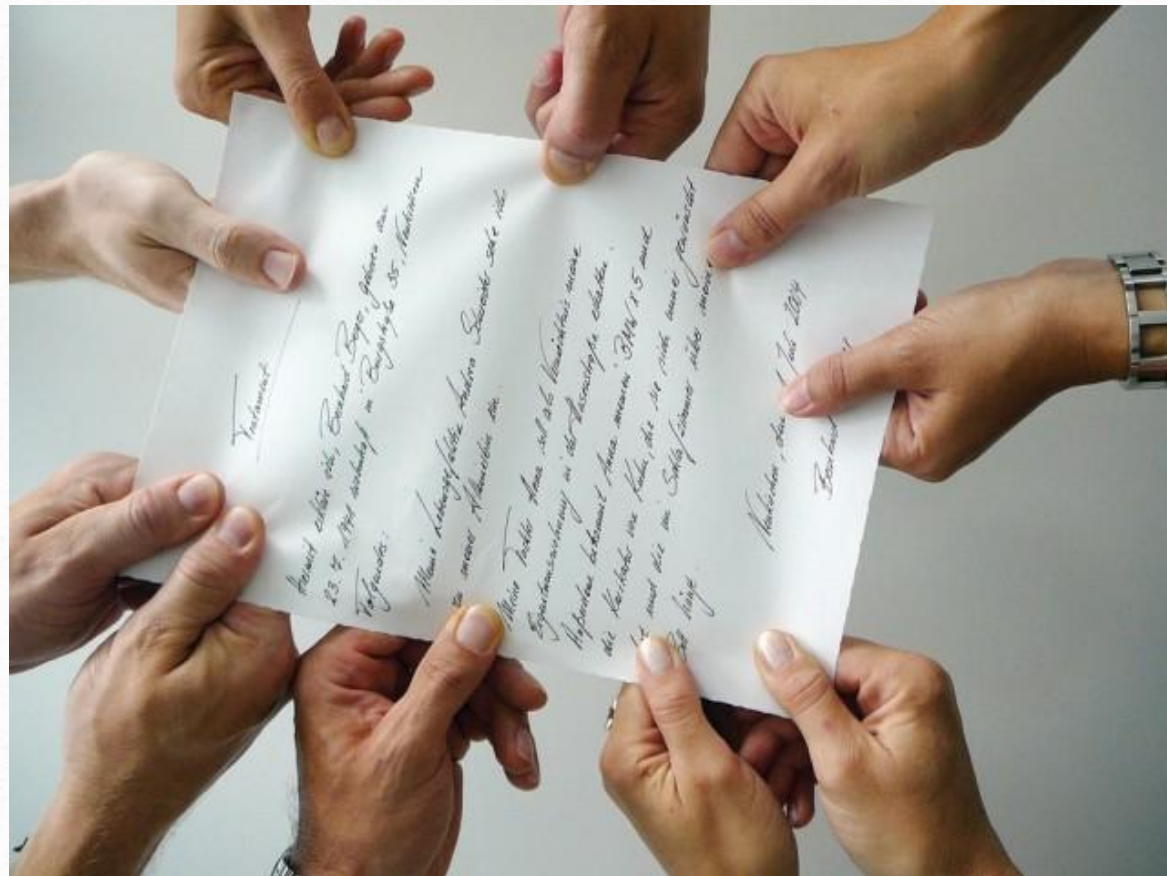 Testament
Hiermit erkläre ich, Bernhard Berger, geboren am
23. 7. 1941 wohnhaft in Burgstraße 35,
Folgendes:
Meine Lebensgefährtin Andrea Schneider setze ich
zu meiner Alleinerbin ein.
Meine Tochter Anna soll als Vermächtnis meine
Eigentumswohnung in der erhalten.
Außerdem bekommt Anna meinen BMW X5 und
die Karikatur von Kuhn, die sie sich immer gewünscht
und die im Schlafzimmer über meinem
hängt.
Juli 2004